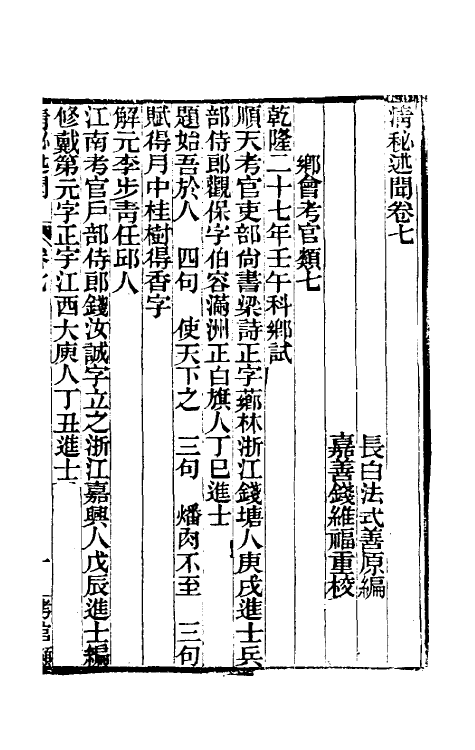 清秘述聞卷七
長白法式善原編
嘉善錢維福重校
鄉會考官類七
乾隆二十七年壬午科鄉試
順天考官吏部尚書梁詩正字薌林浙江錢塘人庚戌進士兵
部侍郎觀保字伯容滿洲正白旗人丁巳進士
題始吾於人 四句 使天下之 三句 燔肉不至 三句
賦得月中桂樹得香字
解元李步青任邱人
江南考官戶部侍郎錢汝誠字立之浙江嘉興人戊辰進士編
修戴第元字正宇江西大庾人丁丑進士
清秘述聞 卷七 一 考官類